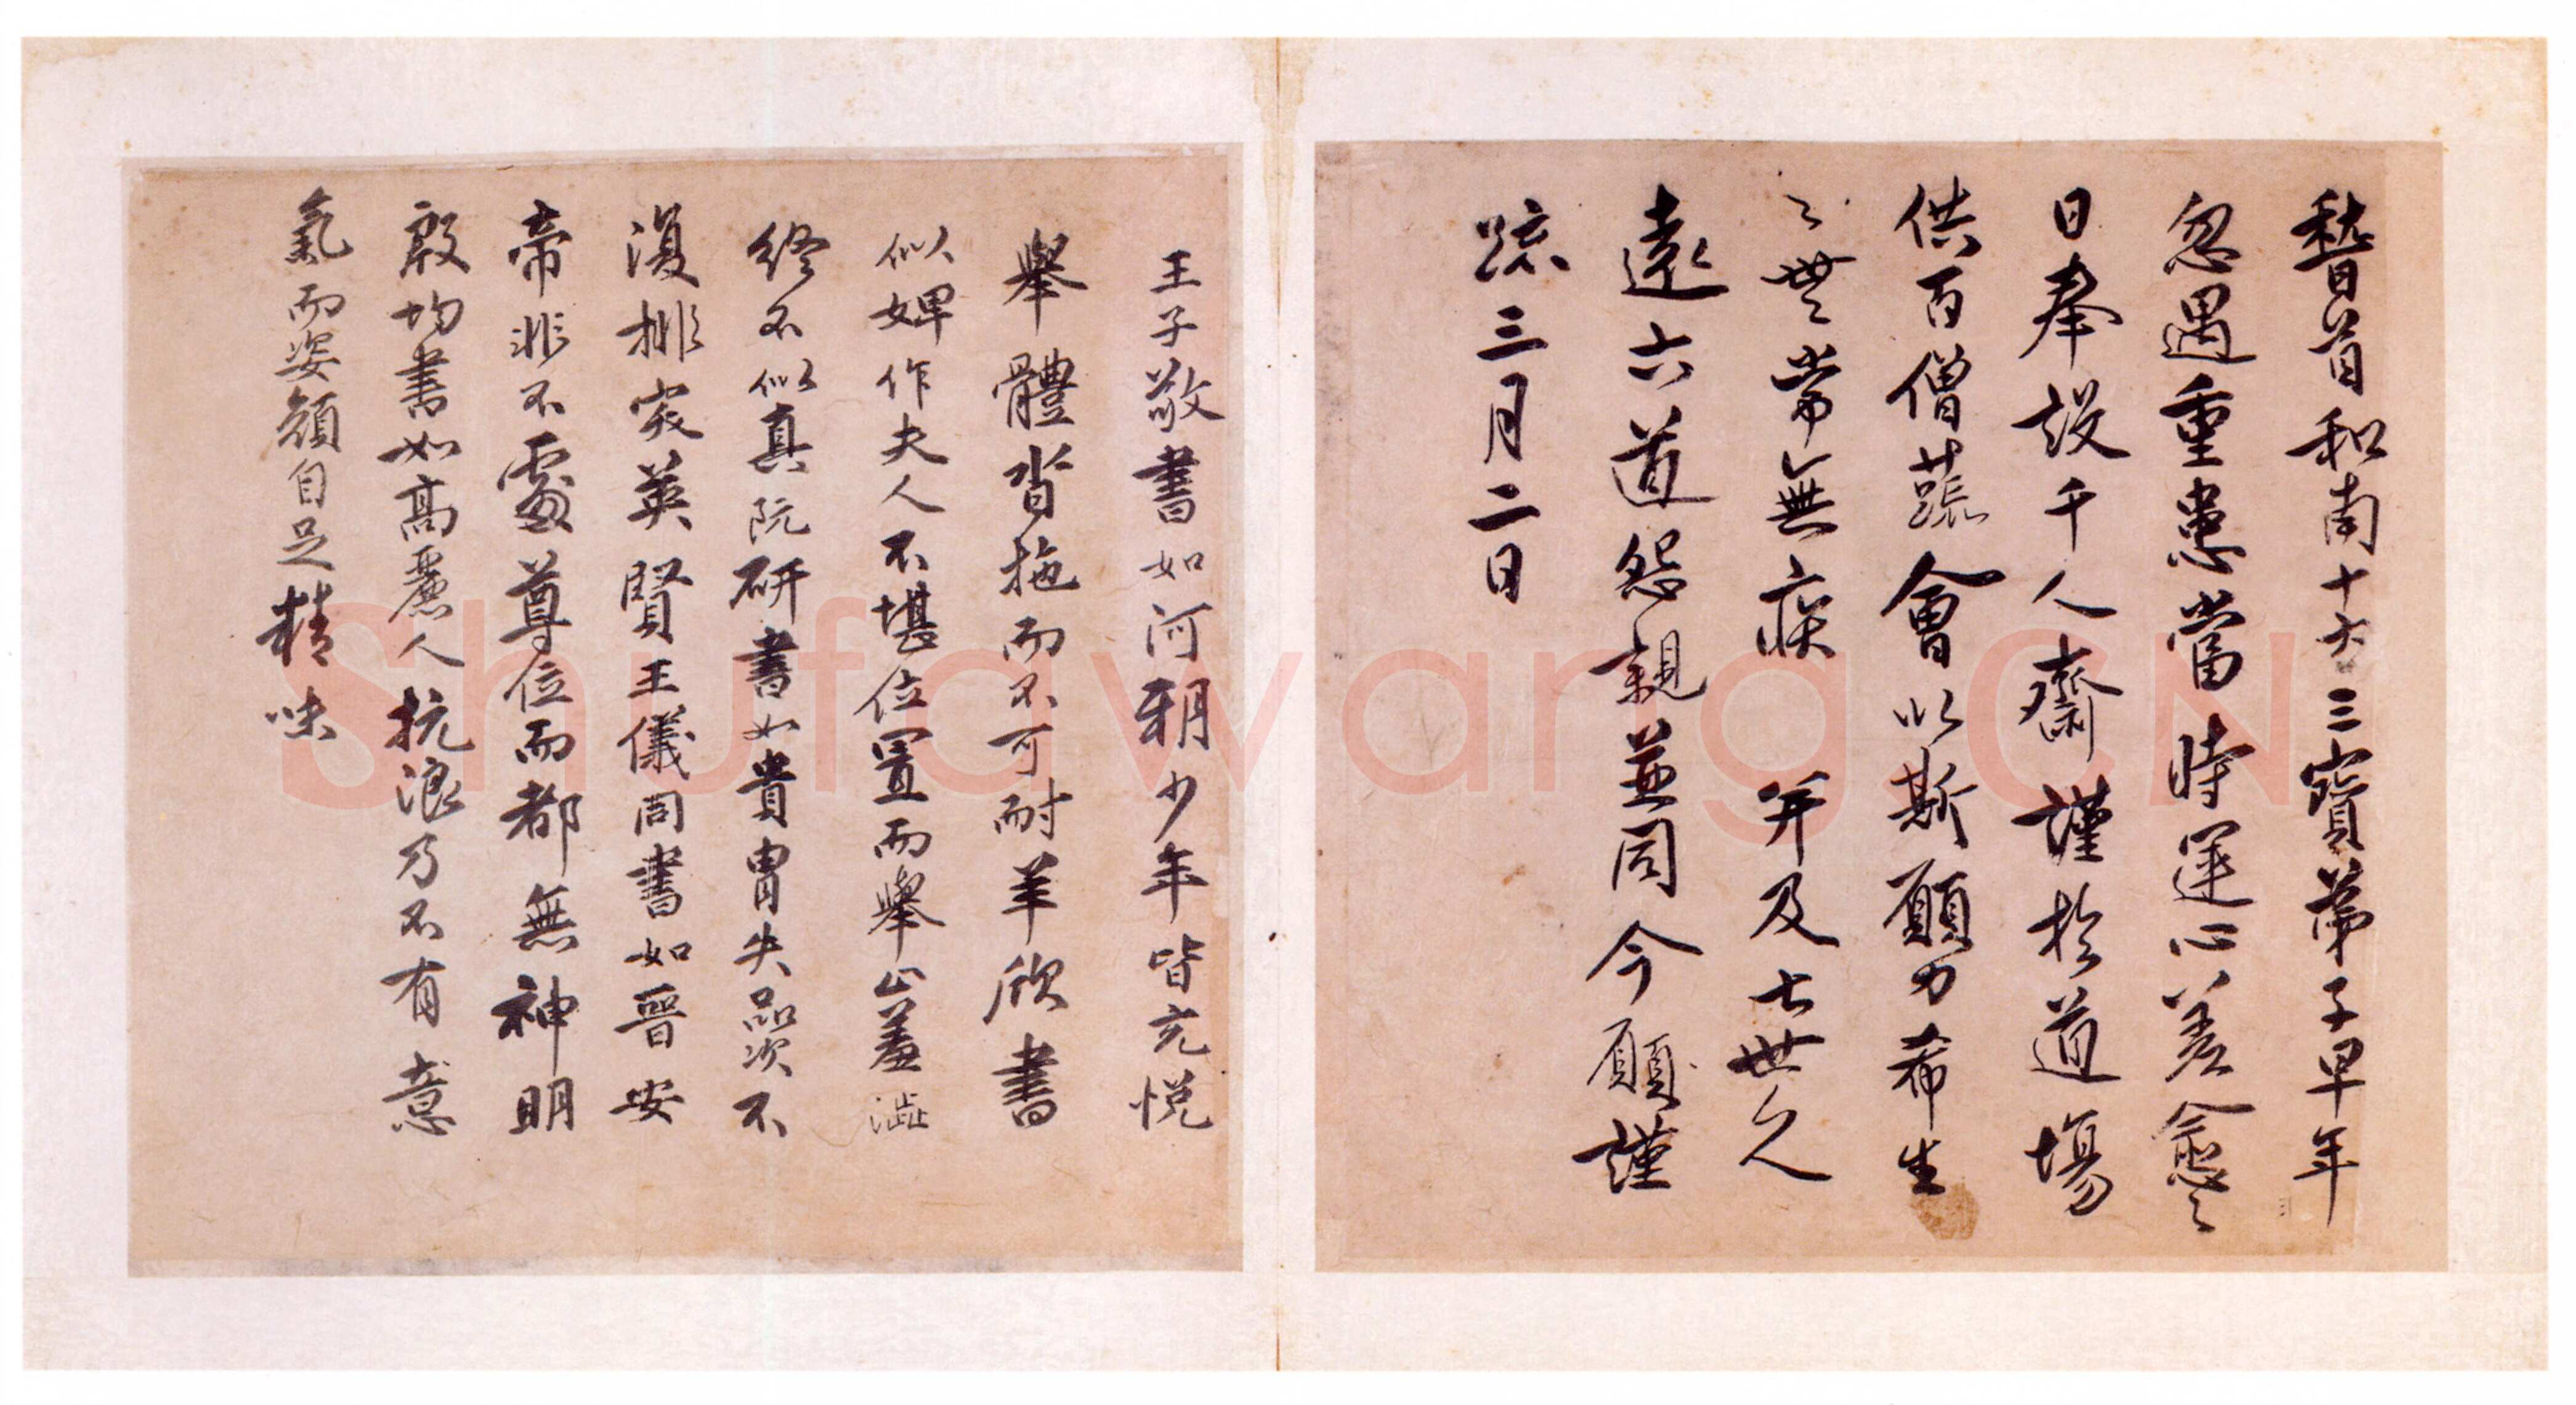 稽首和南十方三寶弟子早年
忽遇重患當時運心差愈之
日奉設千人齋謹於道場
供百僧蔬會以斯願力希生
之世世常無疾并及七世久
遠六道怨親並同今願謹
疏三月二日
王子敬書如河朔少年皆充悅
舉體沓拖而不可耐羊欣書
似婢作夫人不堪位置而舉止羞澀
終不似真阮研書如貴胄失品次不
復排突英賢王儀同書如晉安
帝非不處尊位而都無神明
殷均書如高麗人抗浪乃不有意
氣而姿顏自足精味
Shufawang.CN